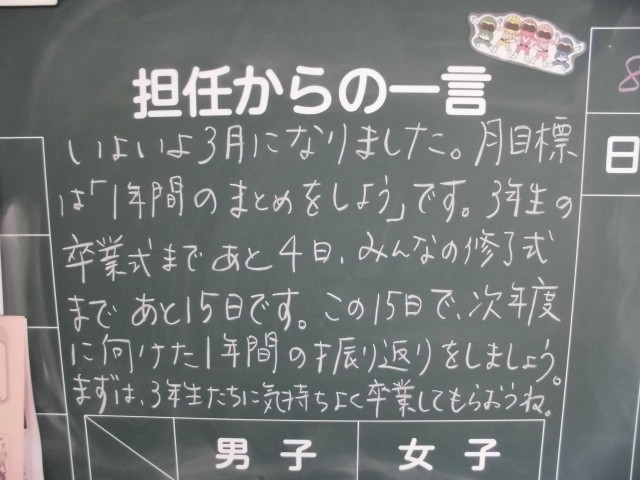 担任からの一言
いよいよ3月になりました。月目標
は「1年間のまとめをしよう」です。3年生の
卒業式まであと4日、みんなの修了式
まであと15日です。この15日で、次年度
に向けた1年間の振り返りをしましょう。
まずは、3年生たちに気持ちよく卒業してもらおうね。
8
日
男子
女子